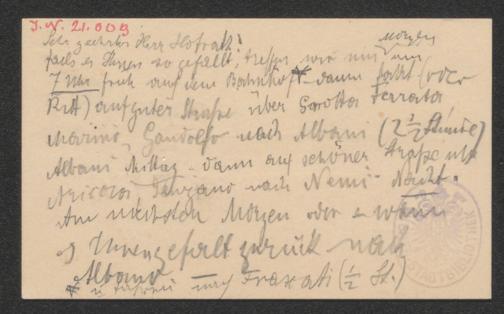 I.N. 21.009
Sehr geehrter Herr Hofrath!
falls es Ihnen so gefällt, treffen wir uns morgen um
7 Uhr früh auf dem Bahnhof – dann Fahrt (oder
Ritt) auf guter Straße über Grotta Ferrata,
Marino, Gandolfo nach Albano (2 ½ Stunde)
Albano Mittag – dann auf schöner Straße über
Ariccia, Genzano nach Nemi. Nacht.
Am nächsten Morgen oder wann
es Ihnen gefällt zurück nach
Albano
u. nach Frascati (½ St.)